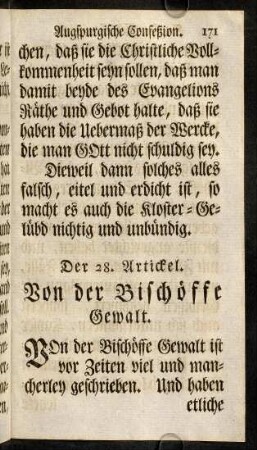 Augspurgische Confeßion. 171
chen, daß sie die Christliche Voll-
kommenheit seyn sollen, daß man
damit beyde des Evangelions
Räthe und Gebot halte, daß sie
haben die Uebermaß der Wercke,
die man GOtt nicht schuldig sey.
Dieweil dann solches alles
falsch, eitel und erdicht ist, so
macht es auch die Kloster-Ge-
lübd nichtig und unbündig.
Der 28. Artickel.
Von der Bischöffe
Gewalt.
VOn der Bischöffe Gewalt ist
vor Zeiten viel und man-
cherley geschrieben. Und haben
etliche